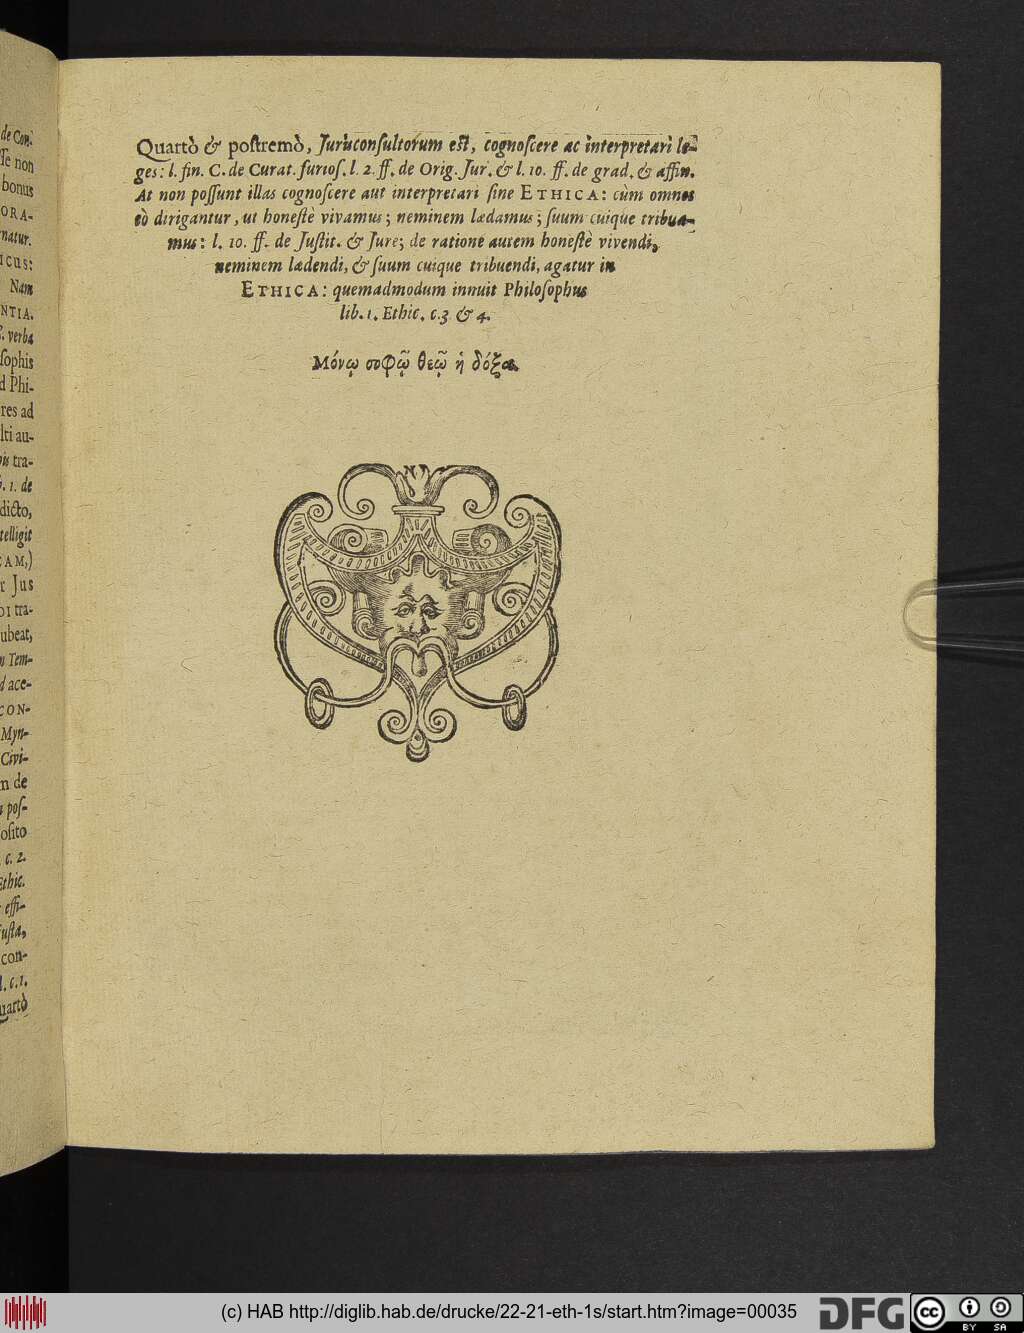 de Con-
se non
bonus
ORA-
natur.
icus:
Nam
NTIA.
verba
sophis
d Phi-
res ad
lti au-
tra-
1. de
dicto,
telligit
CAM,)
r Jus
DI tra-
ubeat,
Tem-
d ace-
CON-
Myn-
Civi-
n de
pos-
osito
c. 2.
Ethic.
effi-
usta,
con-
l. c. 1.
uartò
Quartò & postremò, Jurisconsultorum est, cognoscere ac interpretari le-
ges: l. fin. C. de Curat. furios. l. 2. ff. de Orig. Jur. & l. 10. ff. de grad, & affin.
At non possunt illas cognoscere aut interpretari sine ETHICA: cùm omnes
eò dirigantur, ut honestè vivamus; neminem lædamus; suum cuique tribua-
mus: l. 10. ff. de Justit. & Jure; de ratione autem honestè vivendi,
neminem lædendi, & suum cuique tribuendi, agatur in
ETHICA: quemadmodum innuit Philosophus
lib. 1. Ethic. c. 3 & 4.
Μόνῳ σοφῷ θεῷ ἡ δόξα.
(c) HAB http://diglib.hab.de/drucke/22-21-eth-1s/start.htm?image=00035
DFG
cc
BY SA